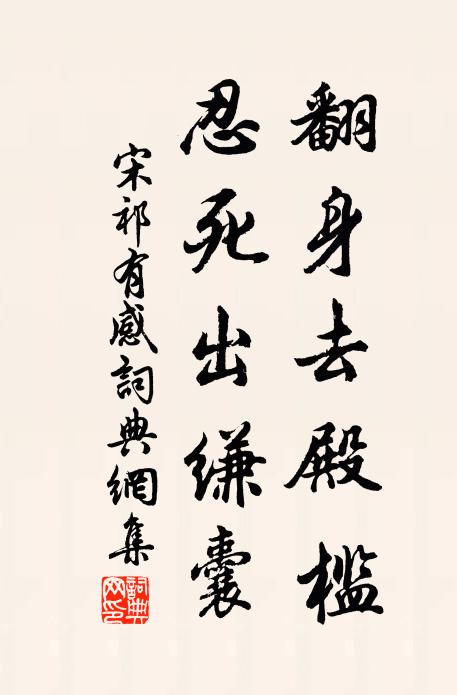 翻身去殿檻
忍死出縑囊
宋祁有感詞典網集
詞典网印